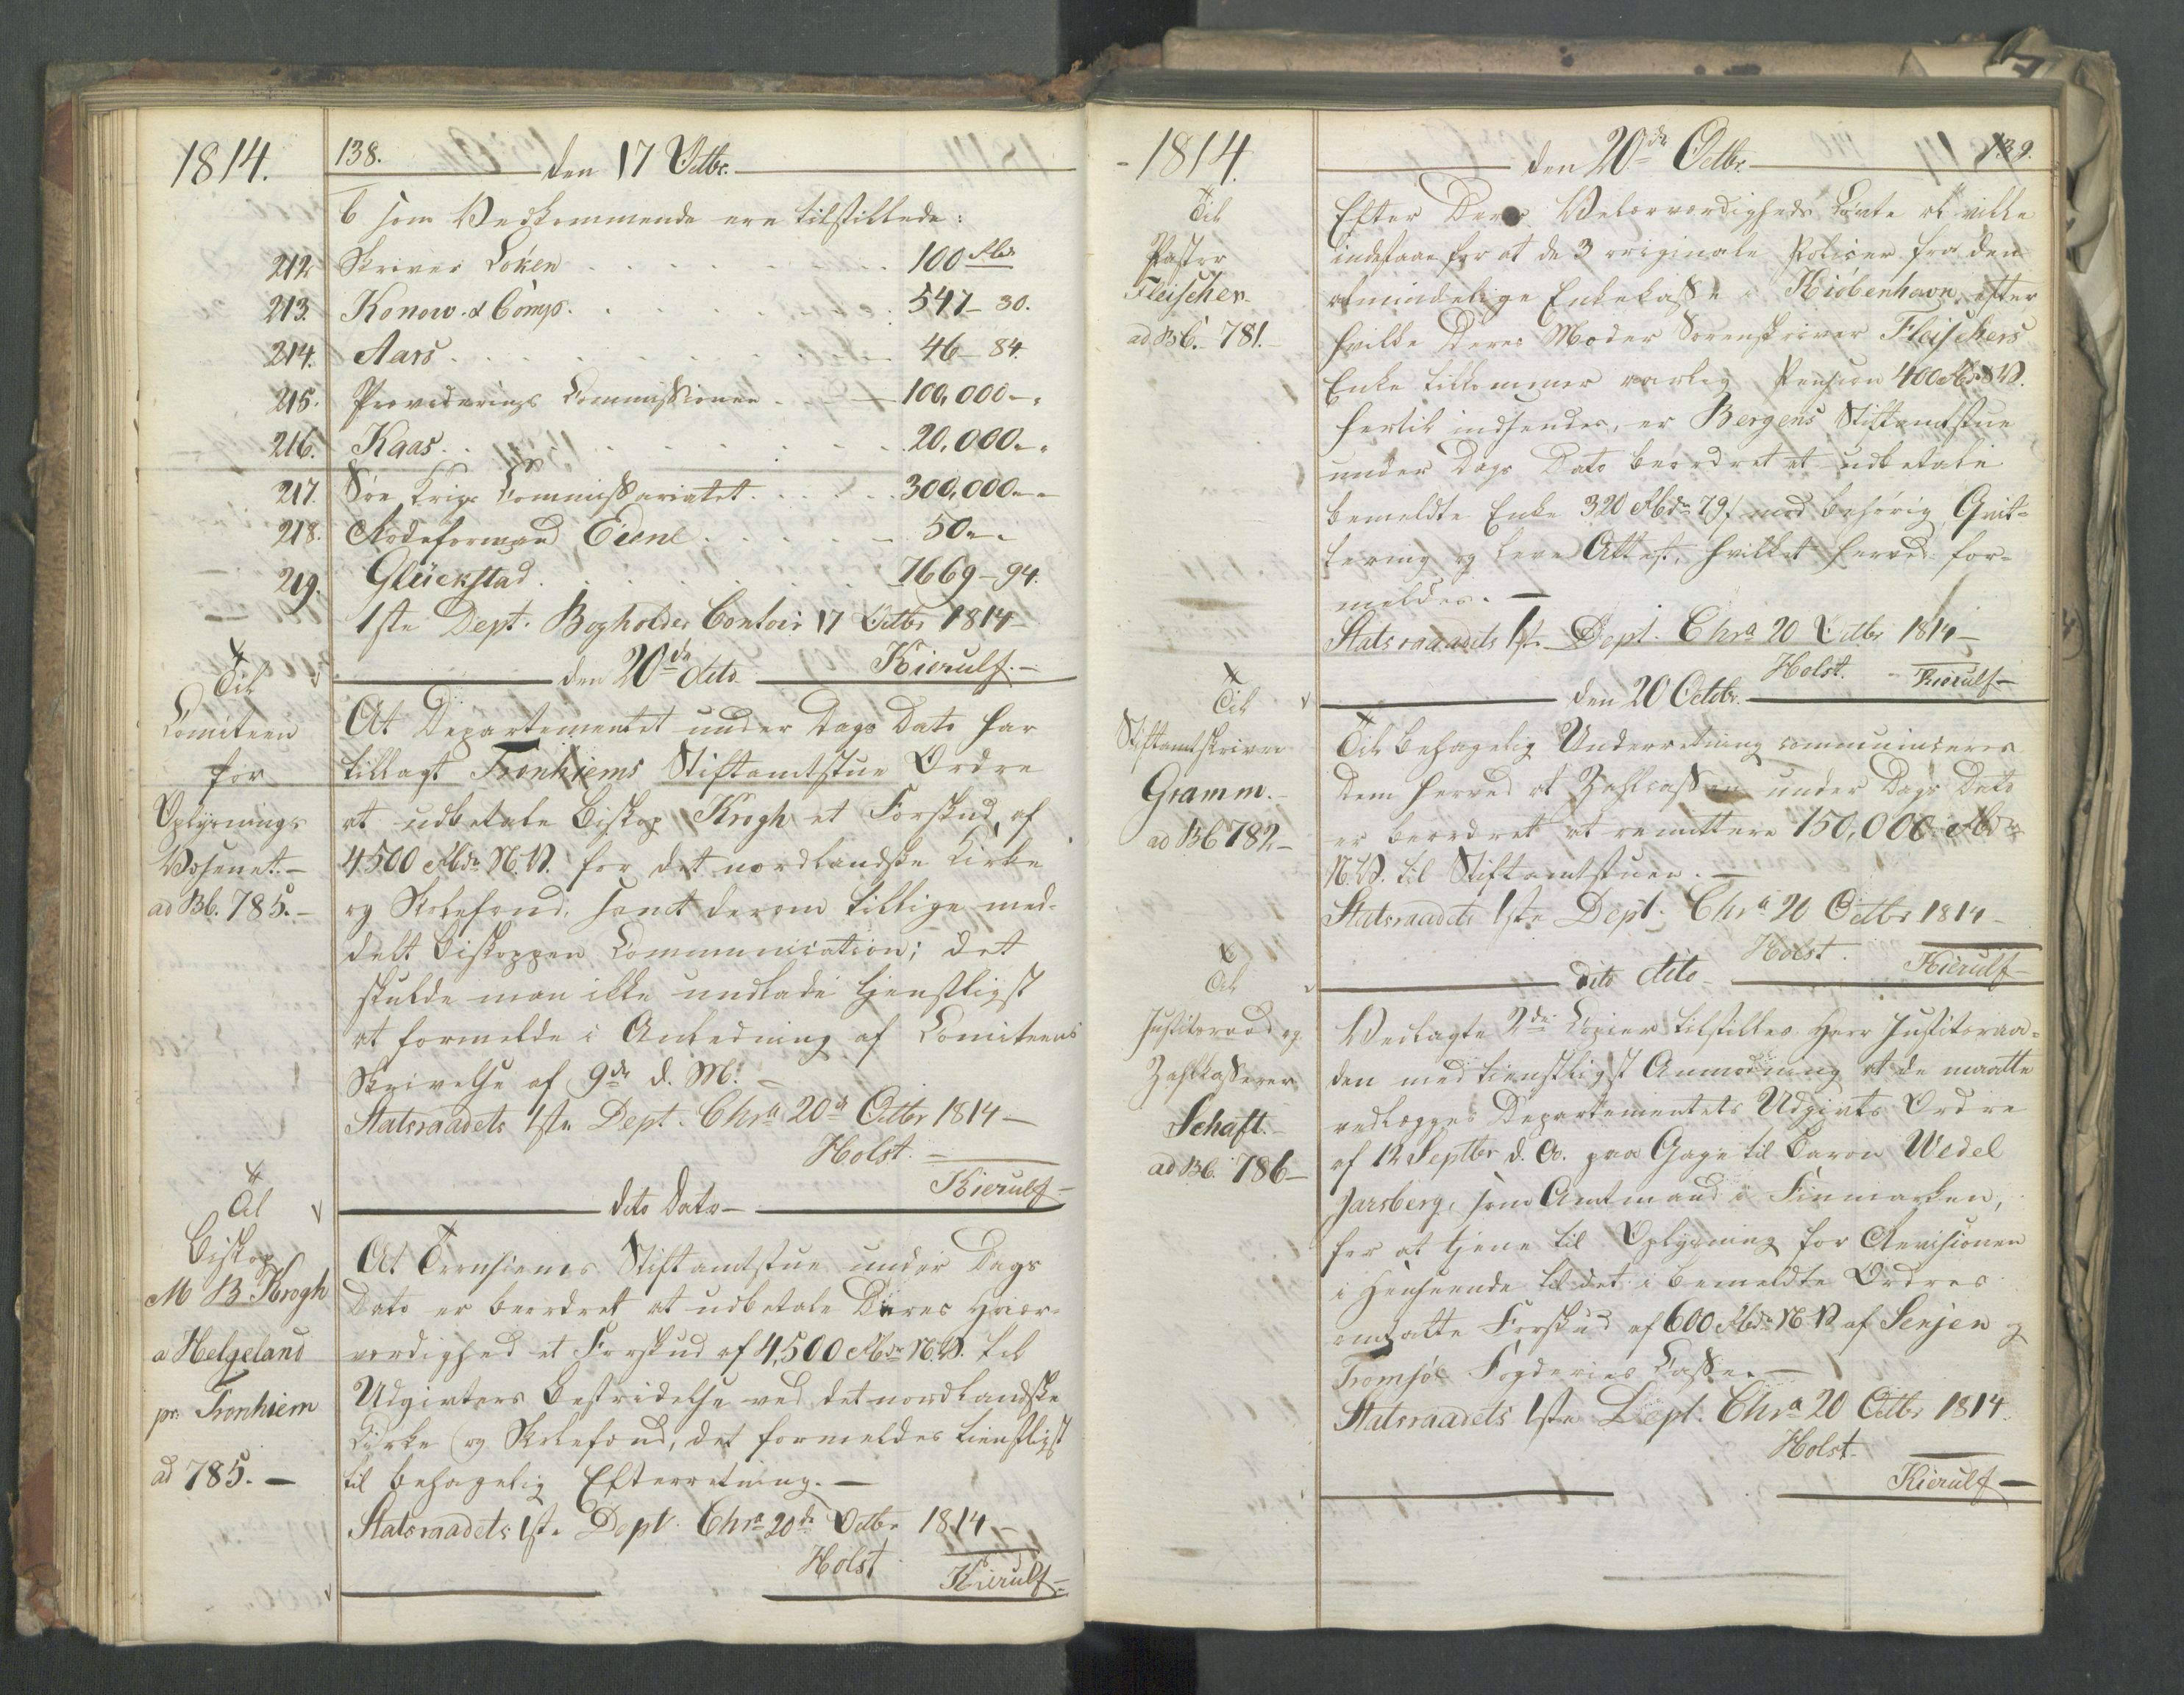 1814.
138.
den 17 Octbr.
6 som Vedkommende ere tilstillede:
212 Skriver Löken 100 Rbd
213. Konow & Comp. 547 - 30.
214. Aars 46 - 84.
215. Providerings Commissionen 100,000 -
216. Kaas 20,000 -
217. Söe Krigs Commissariatet 300,000 -
218. Rodeformand 50 -
219. Glückstad 7669 - 94.
1ste Dept. Bogholder Contoir 17 Octbr 1814 -
Kierulf. -
den 20de dito
Til
Comiteen
for
Oplysnings
Væsenet. -
ad Bb. 785. -
At Departementet under Dags Dato har
tillagt Tronhiems Stiftamtstue Ordre
at udbetale Biskop Krogh et Forskud af
4500 Rbdr N.V. for det nordlandske Kirke
og Skolefond, samt derom tillige med-
delt Biskoppen Communication; det
skulde man ikke undlade tjenstligst
at formelde i Anledning af Comiteens
Skrivelse af 9de d. M. -
Statsraadets 1ste Dept. Chra 20de Octbr 1814 -
Holst. -
Kierulf -
dito Dato -
Til
Biskop
M B Krogh
a Helgeland
pr. Tronhiem
ad 785. -
At Tronhiems Stiftamtstue under Dags
Dato er beordret at udbetale Deres Höiær-
værdighed et Forskud af 4,500 Rbdr N.V. til
Udgivters Bestridelse ved det nordlandske
Kirke og Skolefond, det formeldes tienstligst
til behagelig Efterretning. -
Statsraadets 1ste Dept. Chra 20de Octbr 1814 -
Holst
Kierulf -
1814.
den 20de Octbr.
139.
Til
Pastor
Fleischer
ad Bb. 781. -
Efter Deres Velærværdigheds Lövte at ville
indestaae for at de 3 originale Policer fra den
almindelige Enkekasse i Kiöbenhavn, efter
hvilke Deres Moder Sorenskriver Fleischers
Enke tilkommer aarlig Pension 400 Rbd S.V.
hertil indsendes, er Bergens Stiftamtstue
under Dags Dato beordret at udbetale
bemeldte Enke 320 Rbdr 79 s mod behörig Qvit-
tering og Leve Attest, hvilket herved for-
meldes. -
Statsraadets 1ste Dept. Chra 20 Octbr 1814 -
Holst. - Kierulf -
den 20 Octobr.
Til
Stiftamtskriver
Gramm. -
ad Bb 782 -
Til behagelig Underretning communiceres
Dem herved at Zahlcassen under Dags Dato
er beordret at remittere 150,000 Rbdr
N.V. til Stiftamtstuen. -
Statsraadets 1ste Dept. Chra 20 Octbr 1814 -
Holst.
Kierulf -
dito dito -
Til
Justitsraad og
Zahlkasserer
Schaft. -
ad Bb. 786 -
Vedlagte 2de Copier tilstilles Herr Justitsraa-
den med tienstligst Anmodning at de maatte
vedlægges Departementets Udgivts Ordre
af 12 Septbr d. A. paa Gage til Baron Wedel
Jarsberg, som Amtmand i Finmarken,
for at tjene til Oplysning for Revisionen
i Henseende til det i bemeldte Ordres
omsatte Forskud af 600 Rbdr N.V. af Senjen og
Tromsöe Fogderies Casse. -
Statsraadets 1ste Dept. Chra 20 Octbr 1814.
Holst.
Kierulf -